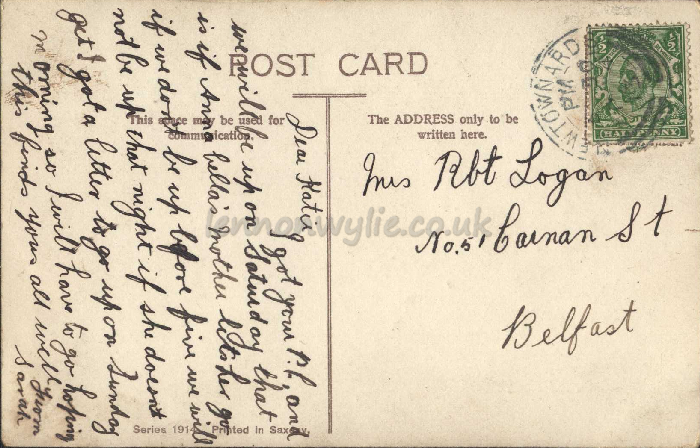 POST CARD
This space may be used for
communication.
The ADDRESS only to be
written here.
NEWTOWNARDS
PM
HALFPENNY
Dear Katie I got your P.C. and
we will be up on Saturday that
is if Anna bella's mother lets her go
if we don't be up before five we will
not be up that night if she doesn't
get I got a letter to go up on Sunday
morning so I will have to go hoping
this finds you all well from
Sarah
Mrs Rbt Logan
No. 51 Carnan St
Belfast
lennonwylie.co.uk
Series 1914. Printed in Saxony.